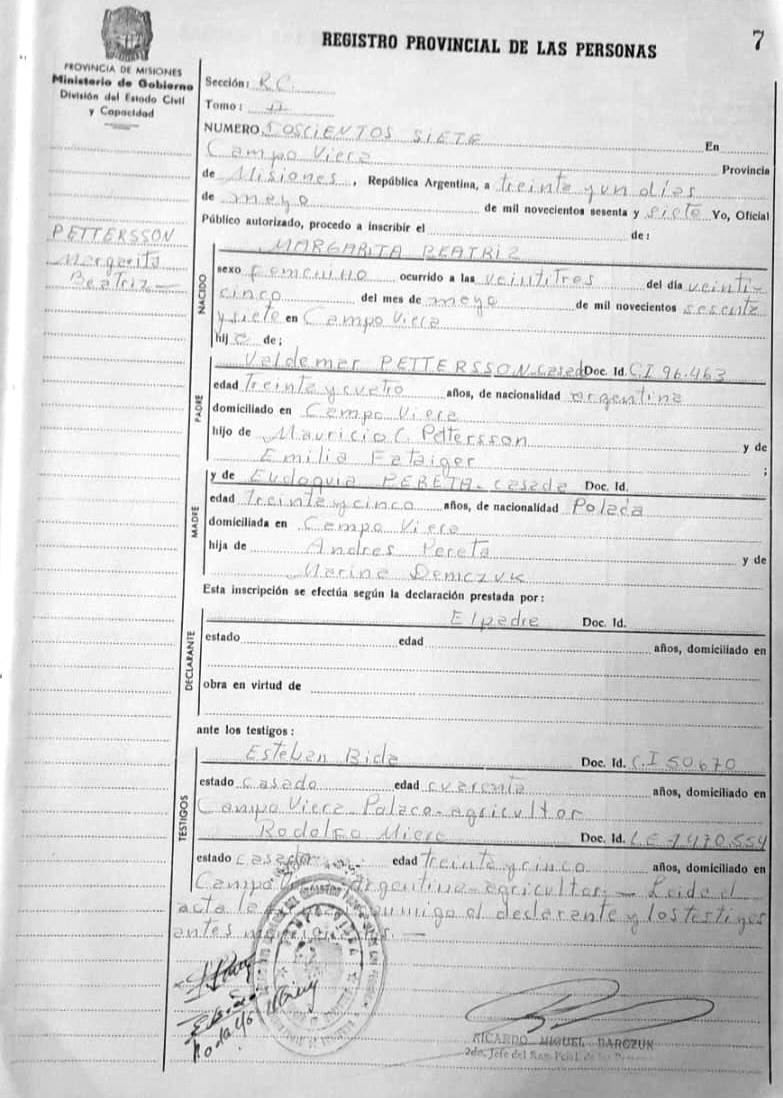 7
REGISTRO PROVINCIAL DE LAS PERSONAS
PROVINCIA DE MISIONES
Ministerio de Gobierno
División del Estado Civil
y Capacidad
Sección: R.C.
Tomo:
NUMERO DOSCIENTOS SIETE En
Campo Viera Provincia
de Misiones, República Argentina, a treinta y un días
de mayo de mil novecientos sesenta y siete Yo, Oficial
Público autorizado, procedo a inscribir el de:
PETTERSSON
Margarita
Beatriz
NACIDO
MARGARITA BEATRIZ
sexo femenino ocurrido a las veintitres del día veinti-
cinco del mes de mayo de mil novecientos sesenta
y siete en Campo Viera
hij a de:
PADRE
Valdemar PETTERSSON-casado Doc. Id. C.I 96.463
edad Treinta y cuatro años, de nacionalidad argentina
domiciliado en Campo Viera
hijo de Mauricio C. Pettersson y de
Emilia Fataiger ;
MADRE
y de Eudoquia PERETA-casada Doc. Id.
edad treinta y cinco años, de nacionalidad Polaca
domiciliada en Campo Viera
hija de Andres Pereta y de
Marina Demczuk
Esta inscripción se efectúa según la declaración prestada por:
DECLARANTE
El padre Doc. Id.
estado edad años, domiciliado en
obra en virtud de
ante los testigos:
TESTIGOS
Esteban Bida Doc. Id. C.I 50.670
estado casado edad cuarenta años, domiciliado en
Campo Viera Polaco-agricultor
Rodolfo Doc. Id. L.E 7470.554
estado casado edad treinta y cinco años, domiciliado en
Campo argentino-agricultor.- Leida el
acta conmigo el declarante y los testigos
antes
RICARDO MIGUEL BARCZUK
2do. Jefe del Reg. Pcial. de las Personas